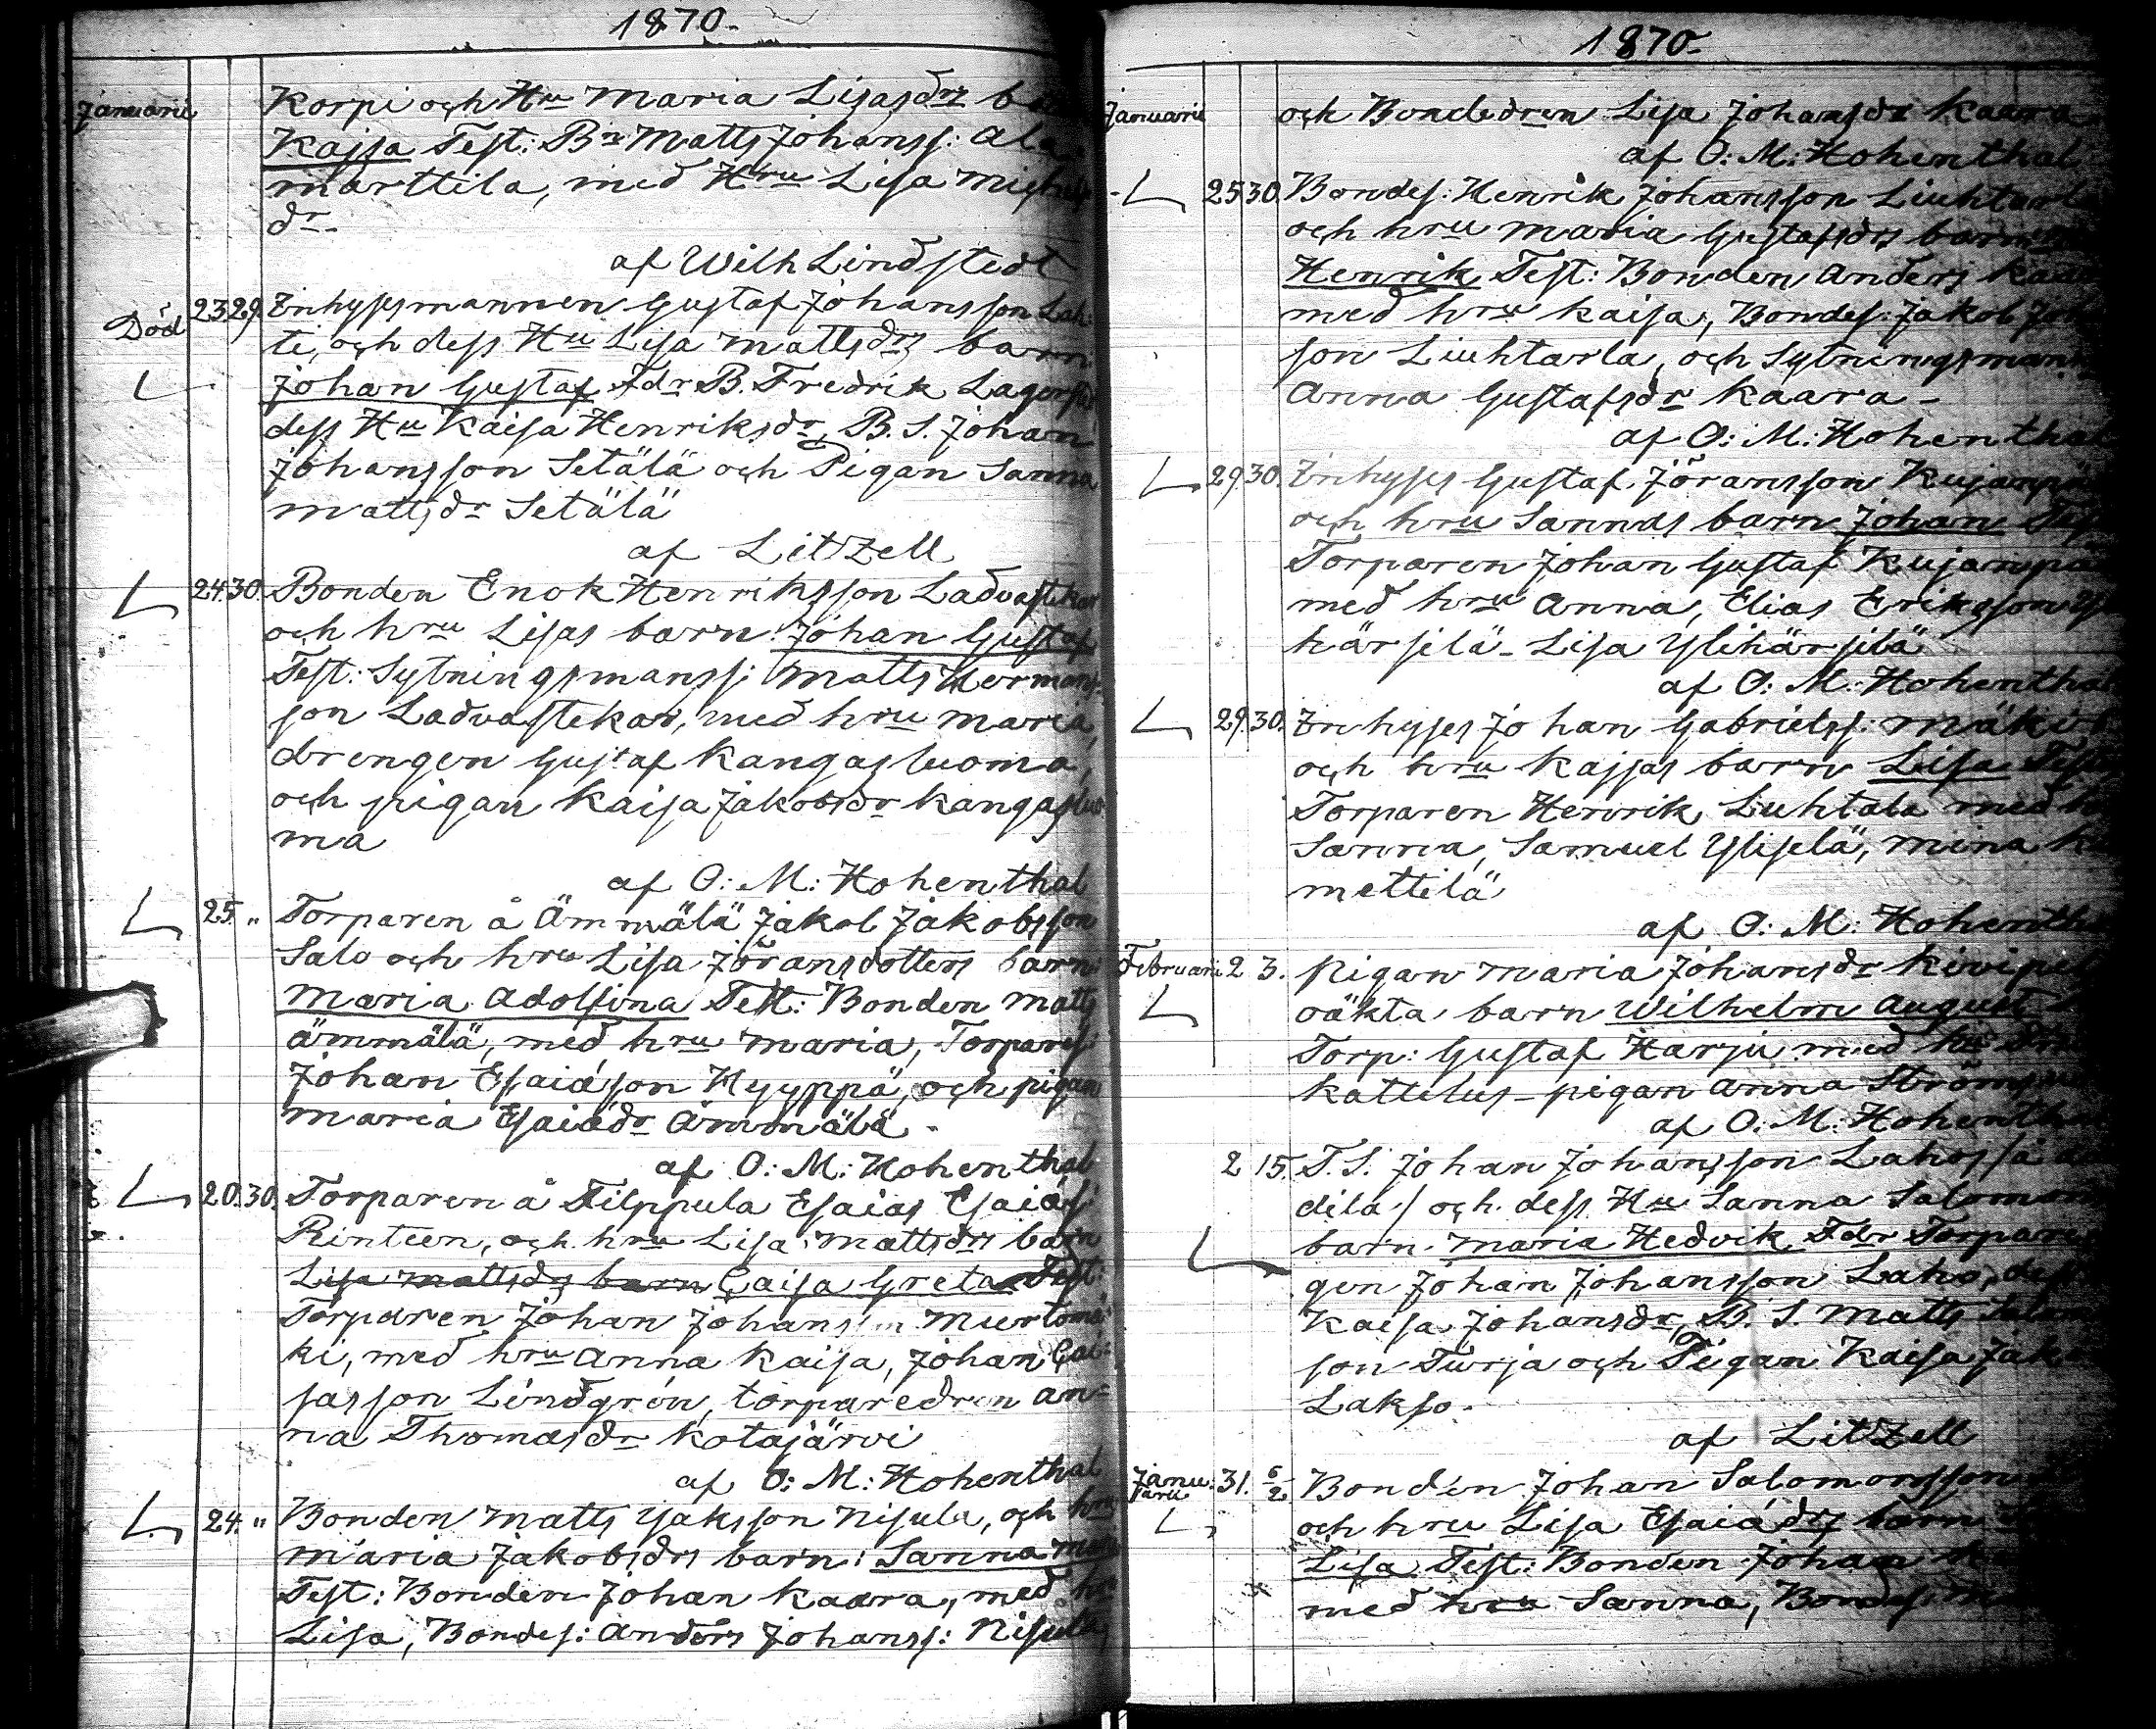 1870.
Januarii
Korpi och Hu Maria Lisasdrs
Kajsa Test: Bn Matts Johanss: Ala-
marttila, med Hru Lisa Michels
dr.
af Wilh Lindstedt
Död 23. 29. Inhysesmannen Gustaf Johansson Lah-
ti, och dess Hu Lisa Mattsdrs barn
Johan Gustaf Fdr B. Fredrik
dess Hu Kaisa Henriksdr, B. S. Johan
Johansson Setälä och Pigan Sanna
Mattsdr Setälä
af Litzell
24. 30. Bonden Enok Henriksson Ladvastekar
och hru Lisas barn Johan Gustaf
Test: Sytningsmanss: Matts Hermans-
son Ladvastekar, med hru Maria,
drengen Gustaf Kangasluoma,
och pigan Kaisa Jakobsdr Kangasluo-
ma
af O: M: Hohenthal
25. " Torparen å Ämmälä Jakob Jakobsson
Salo och hru Lisa Jöransdotters barn:
Maria Adolfina Test: Bonden Matts
Ämmälä, med hru Maria, Torpares:
Johan Esaiason Hyyppä, och pigan
Maria Esaiadr Ämmälä.
af O: M: Hohenthal
20. 30. Torparen å Filppula Esaias Esaias
Rinteen, och hru Lisa Mattsdrs barn
Lisa Mattsdrs barn Caisa Greta Test:
Torparen Johan Johansson Murtomä-
ki, med hru Anna Kaisa, Johan
sasson Lindgrén, torparedren An-
na Thomasdr Kotajärvi
af O: M: Hohenthal
24. " Bonden Matts Isaksson Nisula, och hru
Maria Jakobsdrs barn: Sanna Maria
Test: Bonden Johan Kaara, med hr
Lisa, Bondes: Anders Johanss: Nisula,
1870.
Januarii
och Bondedren Lisa Johansdr Kaara
af O: M: Hohenthal
25. 30. Bondes: Henrik Johansson
och hru Maria Gustafsdrs barn
Henrik Test: Bonden Anders
med hru Kaisa, Bondes: Jakob
son Liuhtarla, och Sytningsman
Anna Gustafsdr Kaara-
af O: M: Hohenthal
29. 30. Inhyses Gustaf Jöransson
och hru Sannas barn Johan
Torparen Johan Gustaf
med hru Anna, Elias Eriksson
härsilä - Lisa Ylihärsilä
af O: M: Hohenthal
29. 30. Inhyses Johan Gabrielss: Mäki
och hru Kajsas barn Lisa
Torparen Henrik Luhtala med
Sanna, Samuel Yliselä, Mina
mettilä
af O: M: Hohenthal
Februari 2 3. Pigan Maria Johansdr
oäkta barn Wilhelm August
Torp: Gustaf Harju med
Kattelus - pigan Anna
af O: M: Hohenthal
2 15. T. S. Johan Johansson
dila ./ och dess Hu Sanna
barn Maria Hedvik Fdr
gen Johan Johansson Laho,
Kaisa Johansdr, B. S. Matts
son Turja och Pigan Kaisa
Lakso.
af Litzell
Janu-
arii 31. 6/2 Bonden Johan Salomonsson
och hru Lisa Esaiadrs barn
Lisa Test: Bonden Johan
med hru Sanna, Bondes: